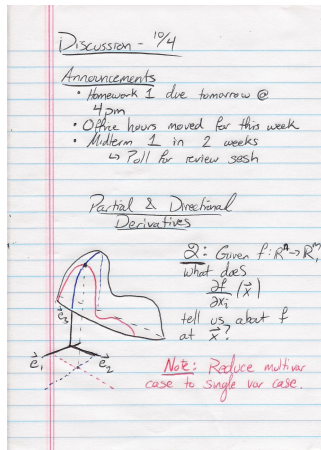 Discussion - 10/4
Announcements
• Homework 1 due tomorrow @
4pm
• Office hours moved for this week
• Midterm 1 in 2 weeks
↳ Poll for review sesh
Partial & Directional
Derivatives
Q: Given f: Rⁿ→Rᵐ,
what does
∂f/∂xᵢ (x⃗)
tell us about f
at x⃗?
e⃗₃
e⃗₁
e⃗₂
Note: Reduce multivar
case to single var case.